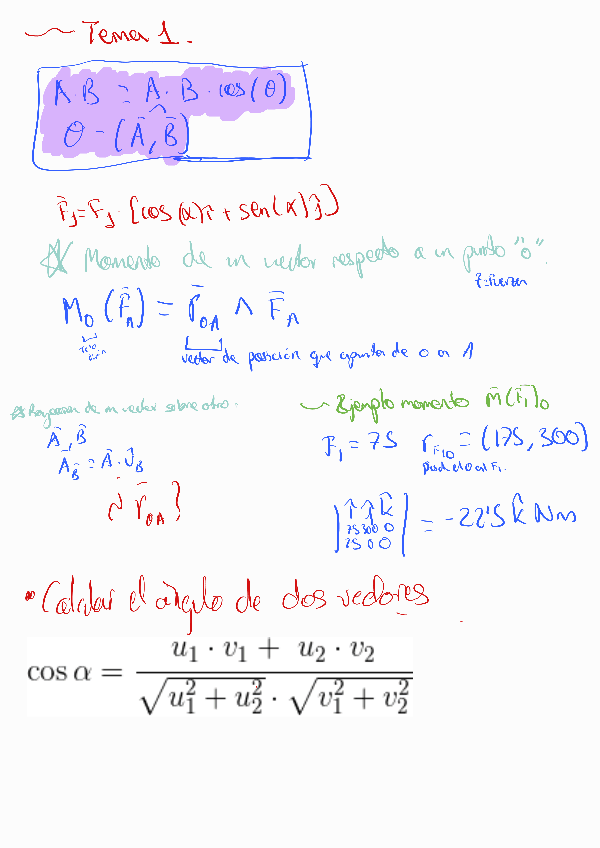 Tema 1.
A · B = A · B · cos(θ)
θ = (Ā,B̄)
F̄j = Fj · [cos(α)î + sen(α)ĵ]
Momento de un vector respecto a un punto "o".
F=Fuerza
M̄o (F̄A) = r̄OA ∧ F̄A
vector de posición que apunta de O a A
Proyección de un vector sobre otro.
Ā, B̄
A_B̄ = Ā · Û_B
r̄OA
Ejemplo momento M̄(F̄1)o
F1 = 75 rF1O = (175, 300)
| î ĵ k̂
300 0
0 0 | = -22'5 k̂ Nm
Calcular el angulo de dos vectores
cos α = (u₁ · v₁ + u₂ · v₂) / (√(u₁² + u₂²) · √(v₁² + v₂²))